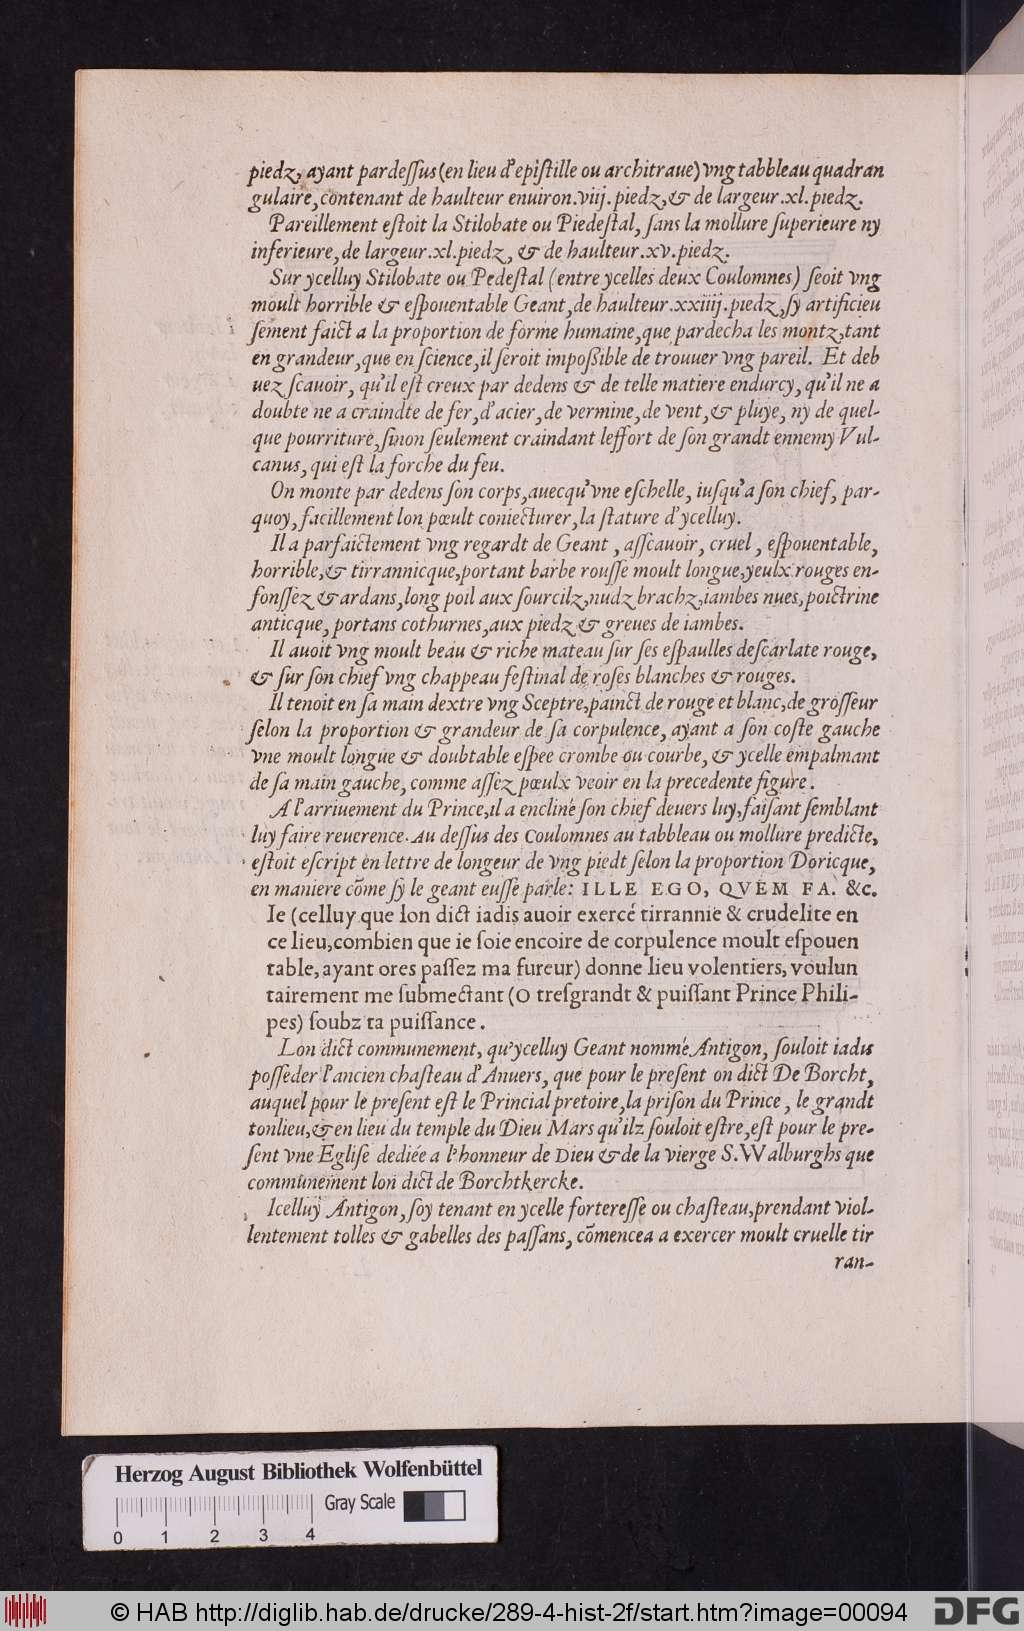 piedz, ayant pardeſſus (en lieu d'epiſtille ou architraue) vng tabbleau quadran
gulaire, contenant de haulteur enuiron.viij.piedz, & de largeur.xl.piedz.
Pareillement eſtoit la Stilobate ou Piedeſtal, ſans la mollure ſuperieure ny
inferieure, de largeur.xl.piedz, & de haulteur.xv.piedz.
Sur ycelluy Stilobate ou Pedeſtal (entre ycelles deux Coulomnes) ſeoit vng
moult horrible & eſpouentable Geant, de haulteur.xxiiij.piedz, ſy artificieu
ſement faict a la proportion de forme humaine, que pardecha les montz, tant
en grandeur, que en ſcience, il ſeroit impoßible de trouuer vng pareil. Et deb
uez ſcauoir, qu'il eſt creux par dedens & de telle matiere endurcy, qu'il ne a
doubte ne a craindte de fer, d'acier, de vermine, de vent, & pluye, ny de quel-
que pourriture, ſinon ſeulement craindant leffort de ſon grandt ennemy Vul-
canus, qui eſt la forche du feu.
On monte par dedens ſon corps, auecqu'vne eſchelle, iuſqu'a ſon chief, par-
quoy, facillement lon pœult coniecturer, la ſtature d'ycelluy.
Il a parfaictement vng regardt de Geant, aſſcauoir, cruel, eſpouentable,
horrible, & tirrannicque, portant barbe rouſſe moult longue, yeulx rouges en-
fonſſez & ardans, long poil aux ſourcilz, nudz brachz, iambes nues, poictrine
anticque, portans cothurnes, aux piedz & greues de iambes.
Il auoit vng moult beau & riche mateau ſur ſes eſpaulles deſcarlate rouge,
& ſur ſon chief vng chappeau feſtinal de roſes blanches & rouges.
Il tenoit en ſa main dextre vng Sceptre, painct de rouge et blanc, de groſſeur
ſelon la proportion & grandeur de ſa corpulence, ayant a ſon coſte gauche
vne moult longue & doubtable eſpee crombe ou courbe, & ycelle empalmant
de ſa main gauche, comme aſſez pœulx veoir en la precedente figure.
A l'arriuement du Prince, il a encliné ſon chief deuers luy, faiſant ſemblant
luy faire reuerence. Au deſſus des Coulomnes au tabbleau ou mollure predicte,
eſtoit eſcript en lettre de longeur de vng piedt ſelon la proportion Doricque,
en maniere cõme ſy le geant euſſe parle: ILLE EGO, QVEM FA. &c.
Ie (celluy que lon dict iadis auoir exercé tirrannie & crudelite en
ce lieu, combien que ie ſoie encoire de corpulence moult eſpouen
table, ayant ores paſſez ma fureur) donne lieu volentiers, voulun
tairement me ſubmectant (O treſgrandt & puiſſant Prince Phili-
pes) ſoubz ta puiſſance.
Lon dict communement, qu'ycelluy Geant nommé Antigon, ſouloit iadis
poſſeder l'ancien chaſteau d'Anuers, que pour le preſent on dict De Borcht,
auquel pour le preſent eſt le Princial pretoire, la priſon du Prince, le grandt
tonlieu, & en lieu du temple du Dieu Mars qu'ilz ſouloit eſtre, eſt pour le pre-
ſent vne Egliſe dediée a l'honneur de Dieu & de la vierge S. Walburghs que
communement lon dict de Borchtkercke.
Icelluy Antigon, ſoy tenant en ycelle fortereſſe ou chaſteau, prendant viol-
lentement tolles & gabelles des paſſans, cõmencea a exercer moult cruelle tir
ran-
Herzog August Bibliothek Wolfenbüttel
Gray Scale
0 1 2 3 4
© HAB http://diglib.hab.de/drucke/289-4-hist-2f/start.htm?image=00094
DFG